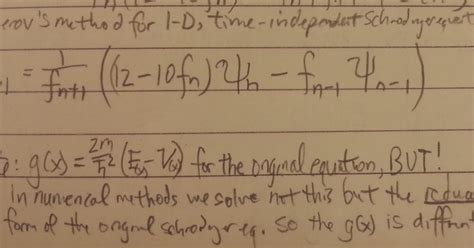 erov's method for 1-D, time-independent Schrodinger equat
-1 = 1/f_{n+1} ((12-10f_n)ψ_n - f_{n-1} ψ_{n-1})
: g(x) = 2m/ħ² (E - V(x)) for the original equation, BUT!
In numerical methods we solve not this but the reduc
form of the original schrodgr eq. So the g(x) is differen